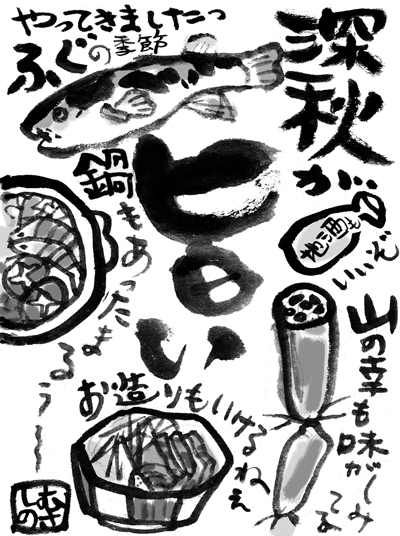 深秋が
旨い
やってきましたっ
ふぐの季節
地酒も
いいぞ
山の幸も味がしみ
てる
鍋もあったま
るぅ〜
お造りもいけるねぇ
むさ
しの